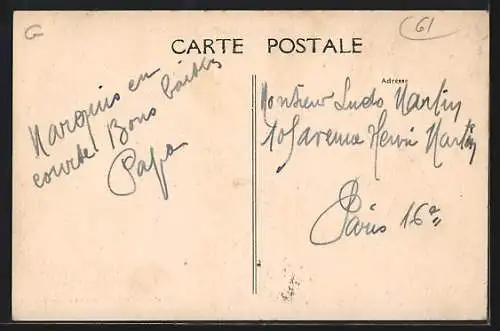 G
61
CARTE POSTALE
Adresse
Marquis en
course Bons baisers
Papa
Monsieur Ludo Martin
105 avenue Henri Martin
Paris 16e